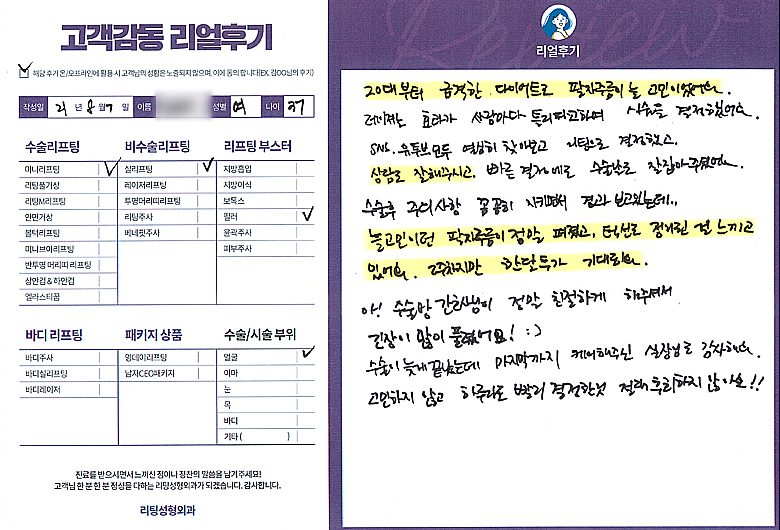 고객감동 리얼후기
해당 후기 온/오프라인에 활용 시 고객님의 성함은 노출되지 않으며, 이에 동의 합니다(EX. 김OO님의 후기)
작성일 21년 8월 7일 이름 성별 여 나이
수술리프팅
미니리프팅
리팅풀기상
리팅M리프팅
안면거상
볼턱리프팅
미니브이리프팅
반투명 머리띠 리프팅
상안검 & 하안검
엘라스티꿈
비수술리프팅
실리프팅
레이저리프팅
투명머리띠리프팅
리팅주사
베네핏주사
리프팅 부스터
지방흡입
지방이식
보톡스
필러
윤곽주사
피부주사
바디 리프팅
바디주사
바디실리프팅
바디레이저
패키지 상품
영데이리프팅
남자CEO패키지
수술/시술 부위
얼굴
이마
눈
목
바디
기타 ( )
진료를 받으시면서 느끼신 점이나 칭찬의 말씀을 남기주세요!
고객님 한 분 한 분 정성을 다하는 리팅성형외과가 되겠습니다. 감사합니다.
리팅성형외과
Review
리얼후기
20대부터 급격한 다이어트로 팔자주름이 늘 고민이었어요.
레이저는 효과가 사람마다 틀리다고하여 시술을 결정했어요.
SNS. 유투브 모두 열심히 찾아보고 리팅으로 결정했고.
상담도 잘해주시고. 빠른 결정에도 수술날도 잘잡아주셨어요.
수술후 주의사항 꼼꼼히 지키면서 결과 보고있는데..
늘고민이던 팔자주름이 정말 펴졌고, 턱선도 정리된 걸 느끼고
있어요. 2주차지만 한달후가 기대되요.
아! 수술방 간호사님이 정말 친절하게 해주셔서
긴장이 많이 풀렸어요! :)
수술이 늦게 끝났는데 마지막까지 케어해주신 실장님도 감사해요.
고민하지 않고 하루라도 빨리 결정한것 절대 후회하지 않아요!!